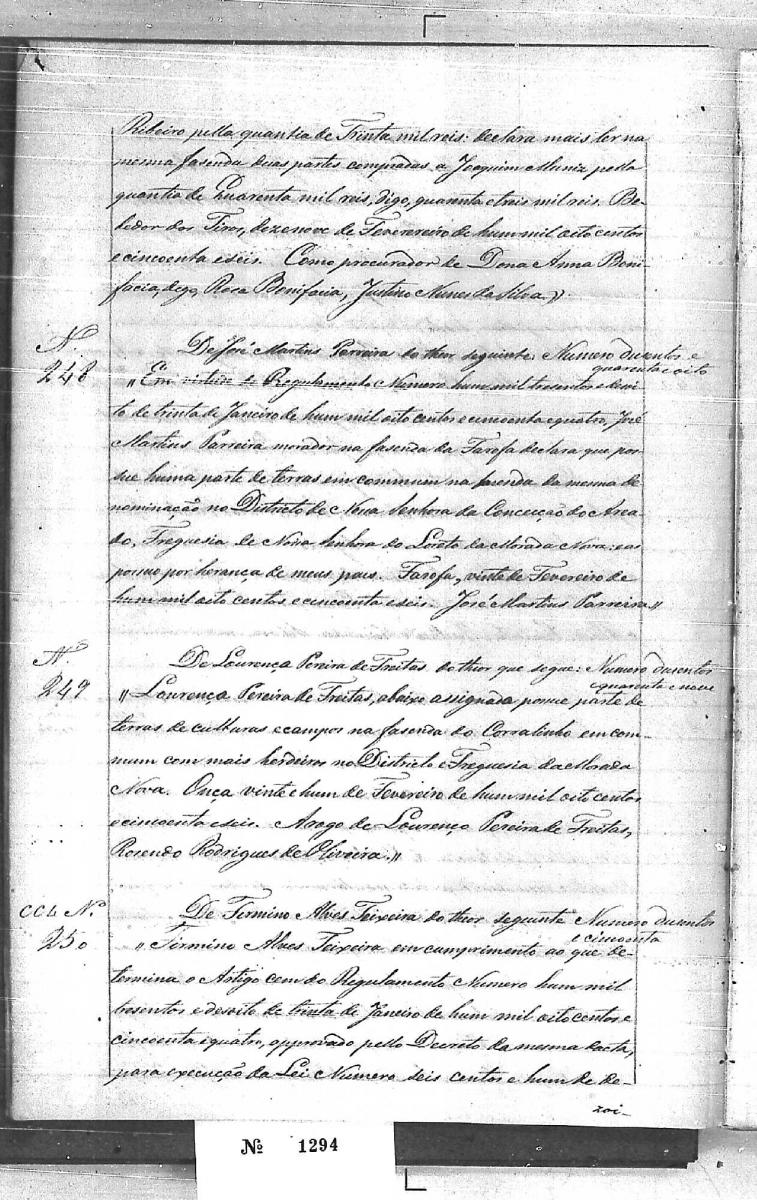 Ribeiro pella quantia de Trinta mil reis: declara mais ter na
mesma fasenda duas partes compradas a Joaquim Muniz pella
quantia de Quarenta mil reis, digo, quarenta e trais mil reis. Be-
bedor dos Tiros, dezenove de Feverereiro de hum mil oito centos
e cincoenta e seis. Como procurador de Dona Anna Boni-
facia, digo, Rosa Bonifacia, Justino Nunes da Silva.»
N.
248
De José Martins Parreira do thior seguinte Numero dusentos e
quarenta e oito
"Em virtude do Regulamento Numero hum mil tresentos e deroi-
to de trinta de Janeiro de hum mil oito centos e cincoenta e quatro, José
Martins Parreira morador na fasenda da Farofa declara que pos-
sue huma parte de terras em commum na fasenda da mesma de
nominação no Districto de Nossa Senhora da Conceição do Area-
do, Freguesia de Nossa Senhora do Loreto da Morada Nova: e as
possue por herança de meus pais. Farofa, vinte de Fevereiro de
hum mil oito centos e cincoenta e seis. José Martins Parreira"
N.
249
De Lourença Pereira de Freitas do thior que segue: Numero dusentos
quarenta e nove
"Lourença Pereira de Freitas, abaixo assignada possue parte de
terras de culturas e campos na fasenda do Corralinho em com-
mum com mais herdeiros no Districto e Freguesia da Morada
Nova. Onça vinte e hum de Fevereiro de hum mil oito centos
e cincoenta e seis. Arogo de Lourença Pereira de Freitas,
Rosendo Rodrigues de Oliveira."
CCL Nº
250
De Firmino Alves Teixeira do thior seguinte Numero dusentos
e cincoenta
"Firmino Alves Teixeira em cumprimento ao que de-
termina o Artigo cem do Regulamento Numero hum mil
tresentos e desoito de trinta de Janeiro de hum mil oito centos e
cincoenta e quatro, approvado pello Decreto da mesma dacta,
para execução da Lei Numero seis centos e hum de de-
zoi-
Nº 1294